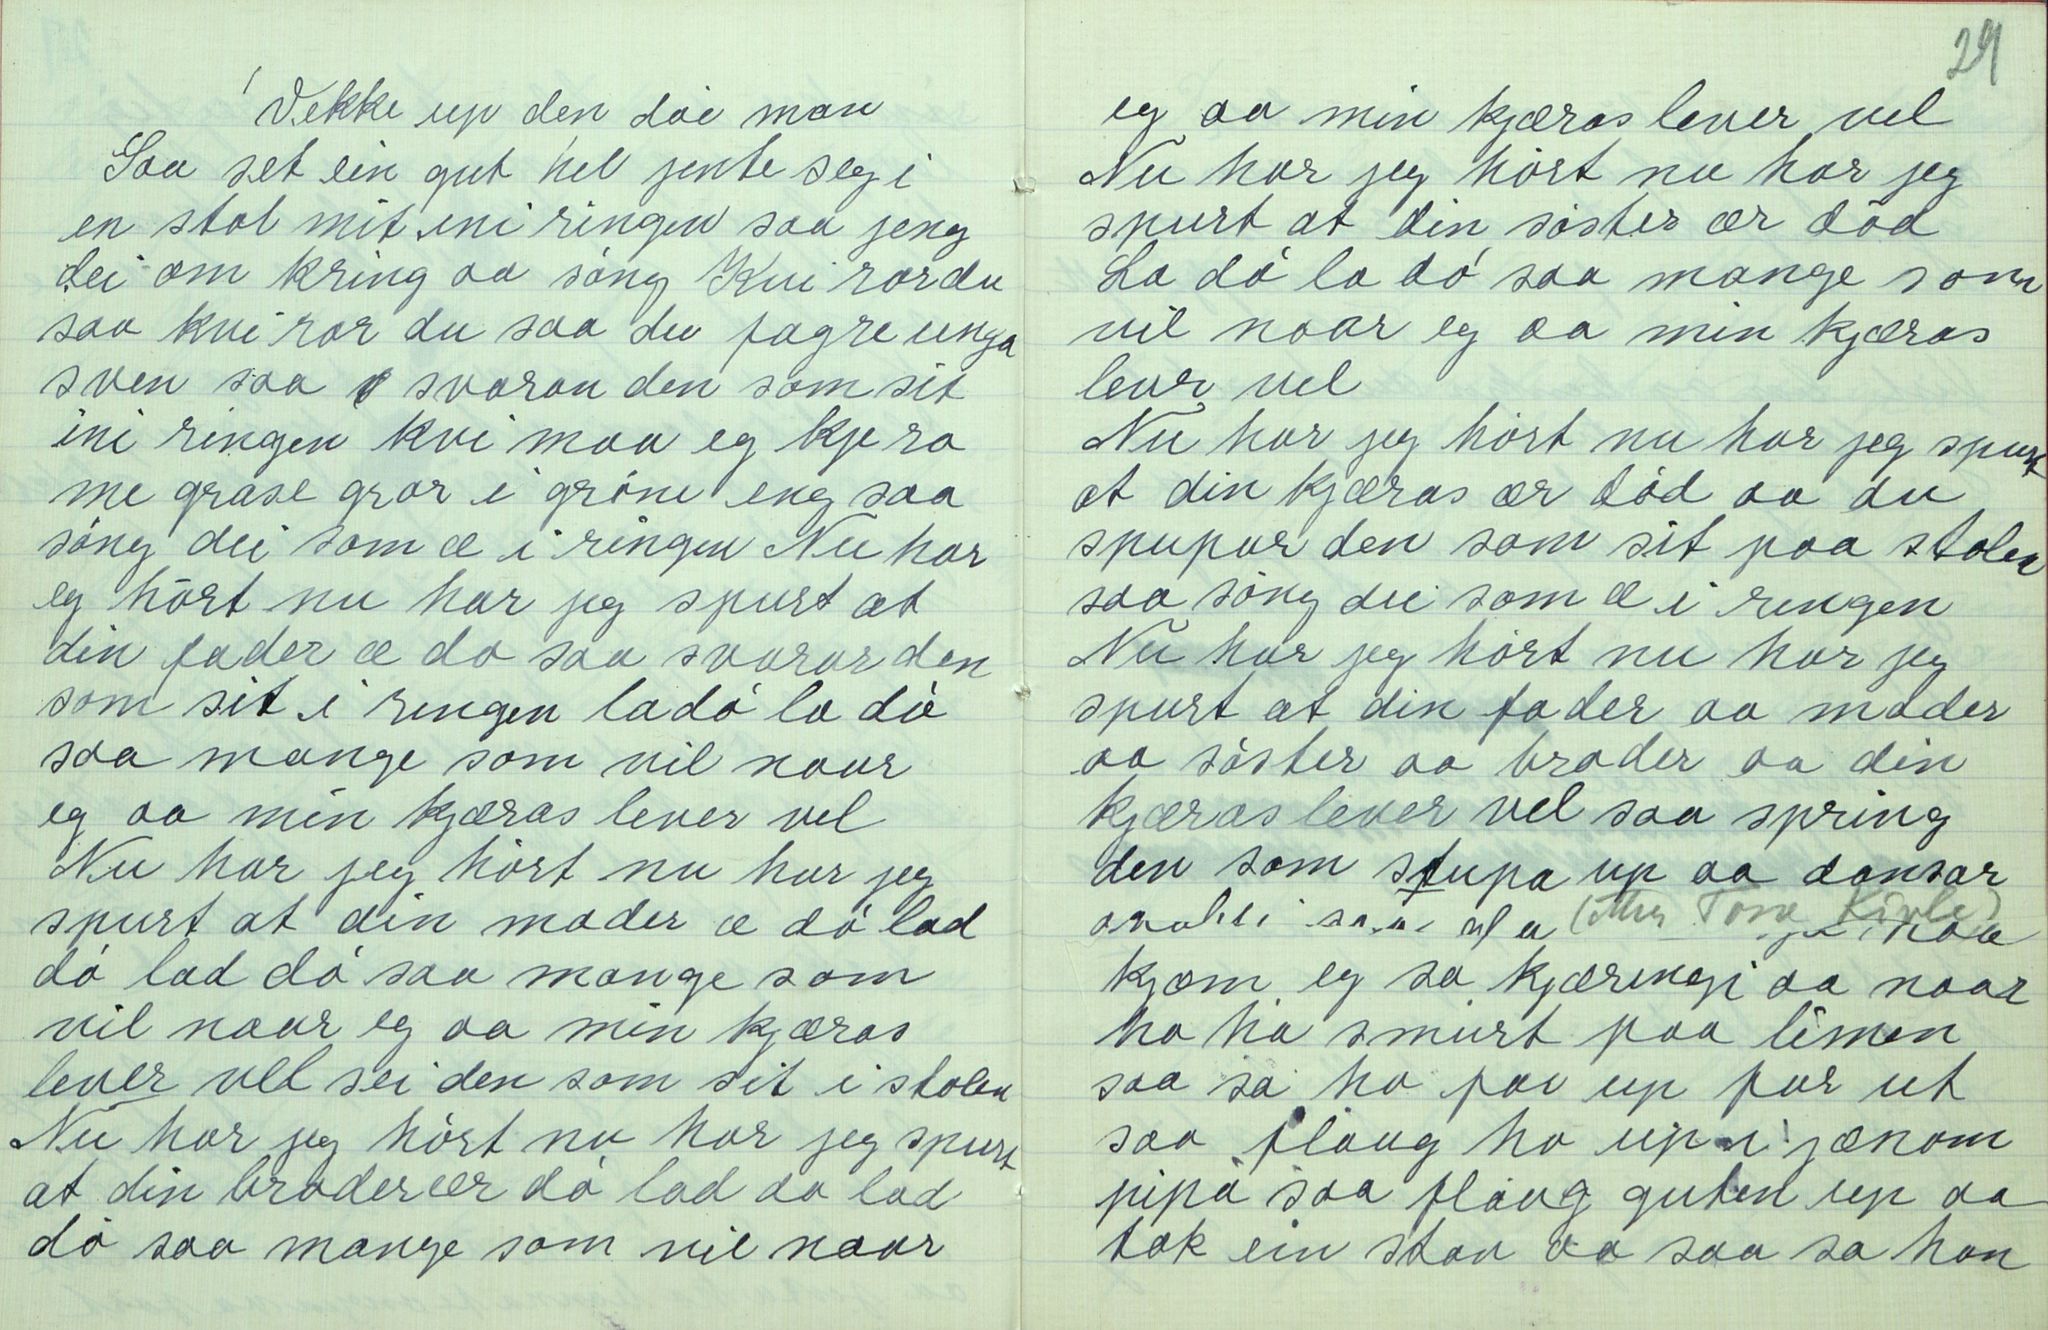 Vekke up den döe man
Saa set ein gut hel jente seg i
en stol mit .ini ringen saa jeng
dei om kring aa söng Kvi rordu
saa kvi ror du saa du fagre unga
sven saa svarau den som sit
ini ringen kvi maa eg kje ro
me grase gror i gröne eng saa
söng dei som æ i ringen Nu har
eg hört nu har jeg spurt at
din fader æ do saa svarar den
som sit i ringen la dö la dö
saa mange som vil naar
eg aa min kjæras lever vel
Nu har jeg hört nu har jeg
spurt at din moder æ dö lad
dö lad dö saa mange som
vil naar eg aa min kjæras
lever vel sei den som sit i stolen
Nu har jeg hört nu har jeg spurt
at din broder ær dö lad do lad
dö saa mange som vil naar
29
eg aa min kjæras lever vel
Nu har jeg hört nu har jeg
spurt at din söster ær död
La dö la dö saa mange som
vil naar eg aa min kjæras
levr vel
Nu har jeg hört nu har jeg spurt
at din kjæras ær död aa du
spupar den som sit paa stolen
saa söng dei som æ i ringen
Nu har jeg hört nu har jeg
spurt at din fader aa moder
aa söster aa broder aa din
kjæras lever vel saa spring
den som stupa up aa dansar
(etter Tone Kivle)
kjæm eg sa kjæringi aa naar
ho ha smurt paa limen
saa sa ho for up for ut
saa flaug ho up i jænom
pipa saa flaug guten up aa
tok ein stav aa saa sa han